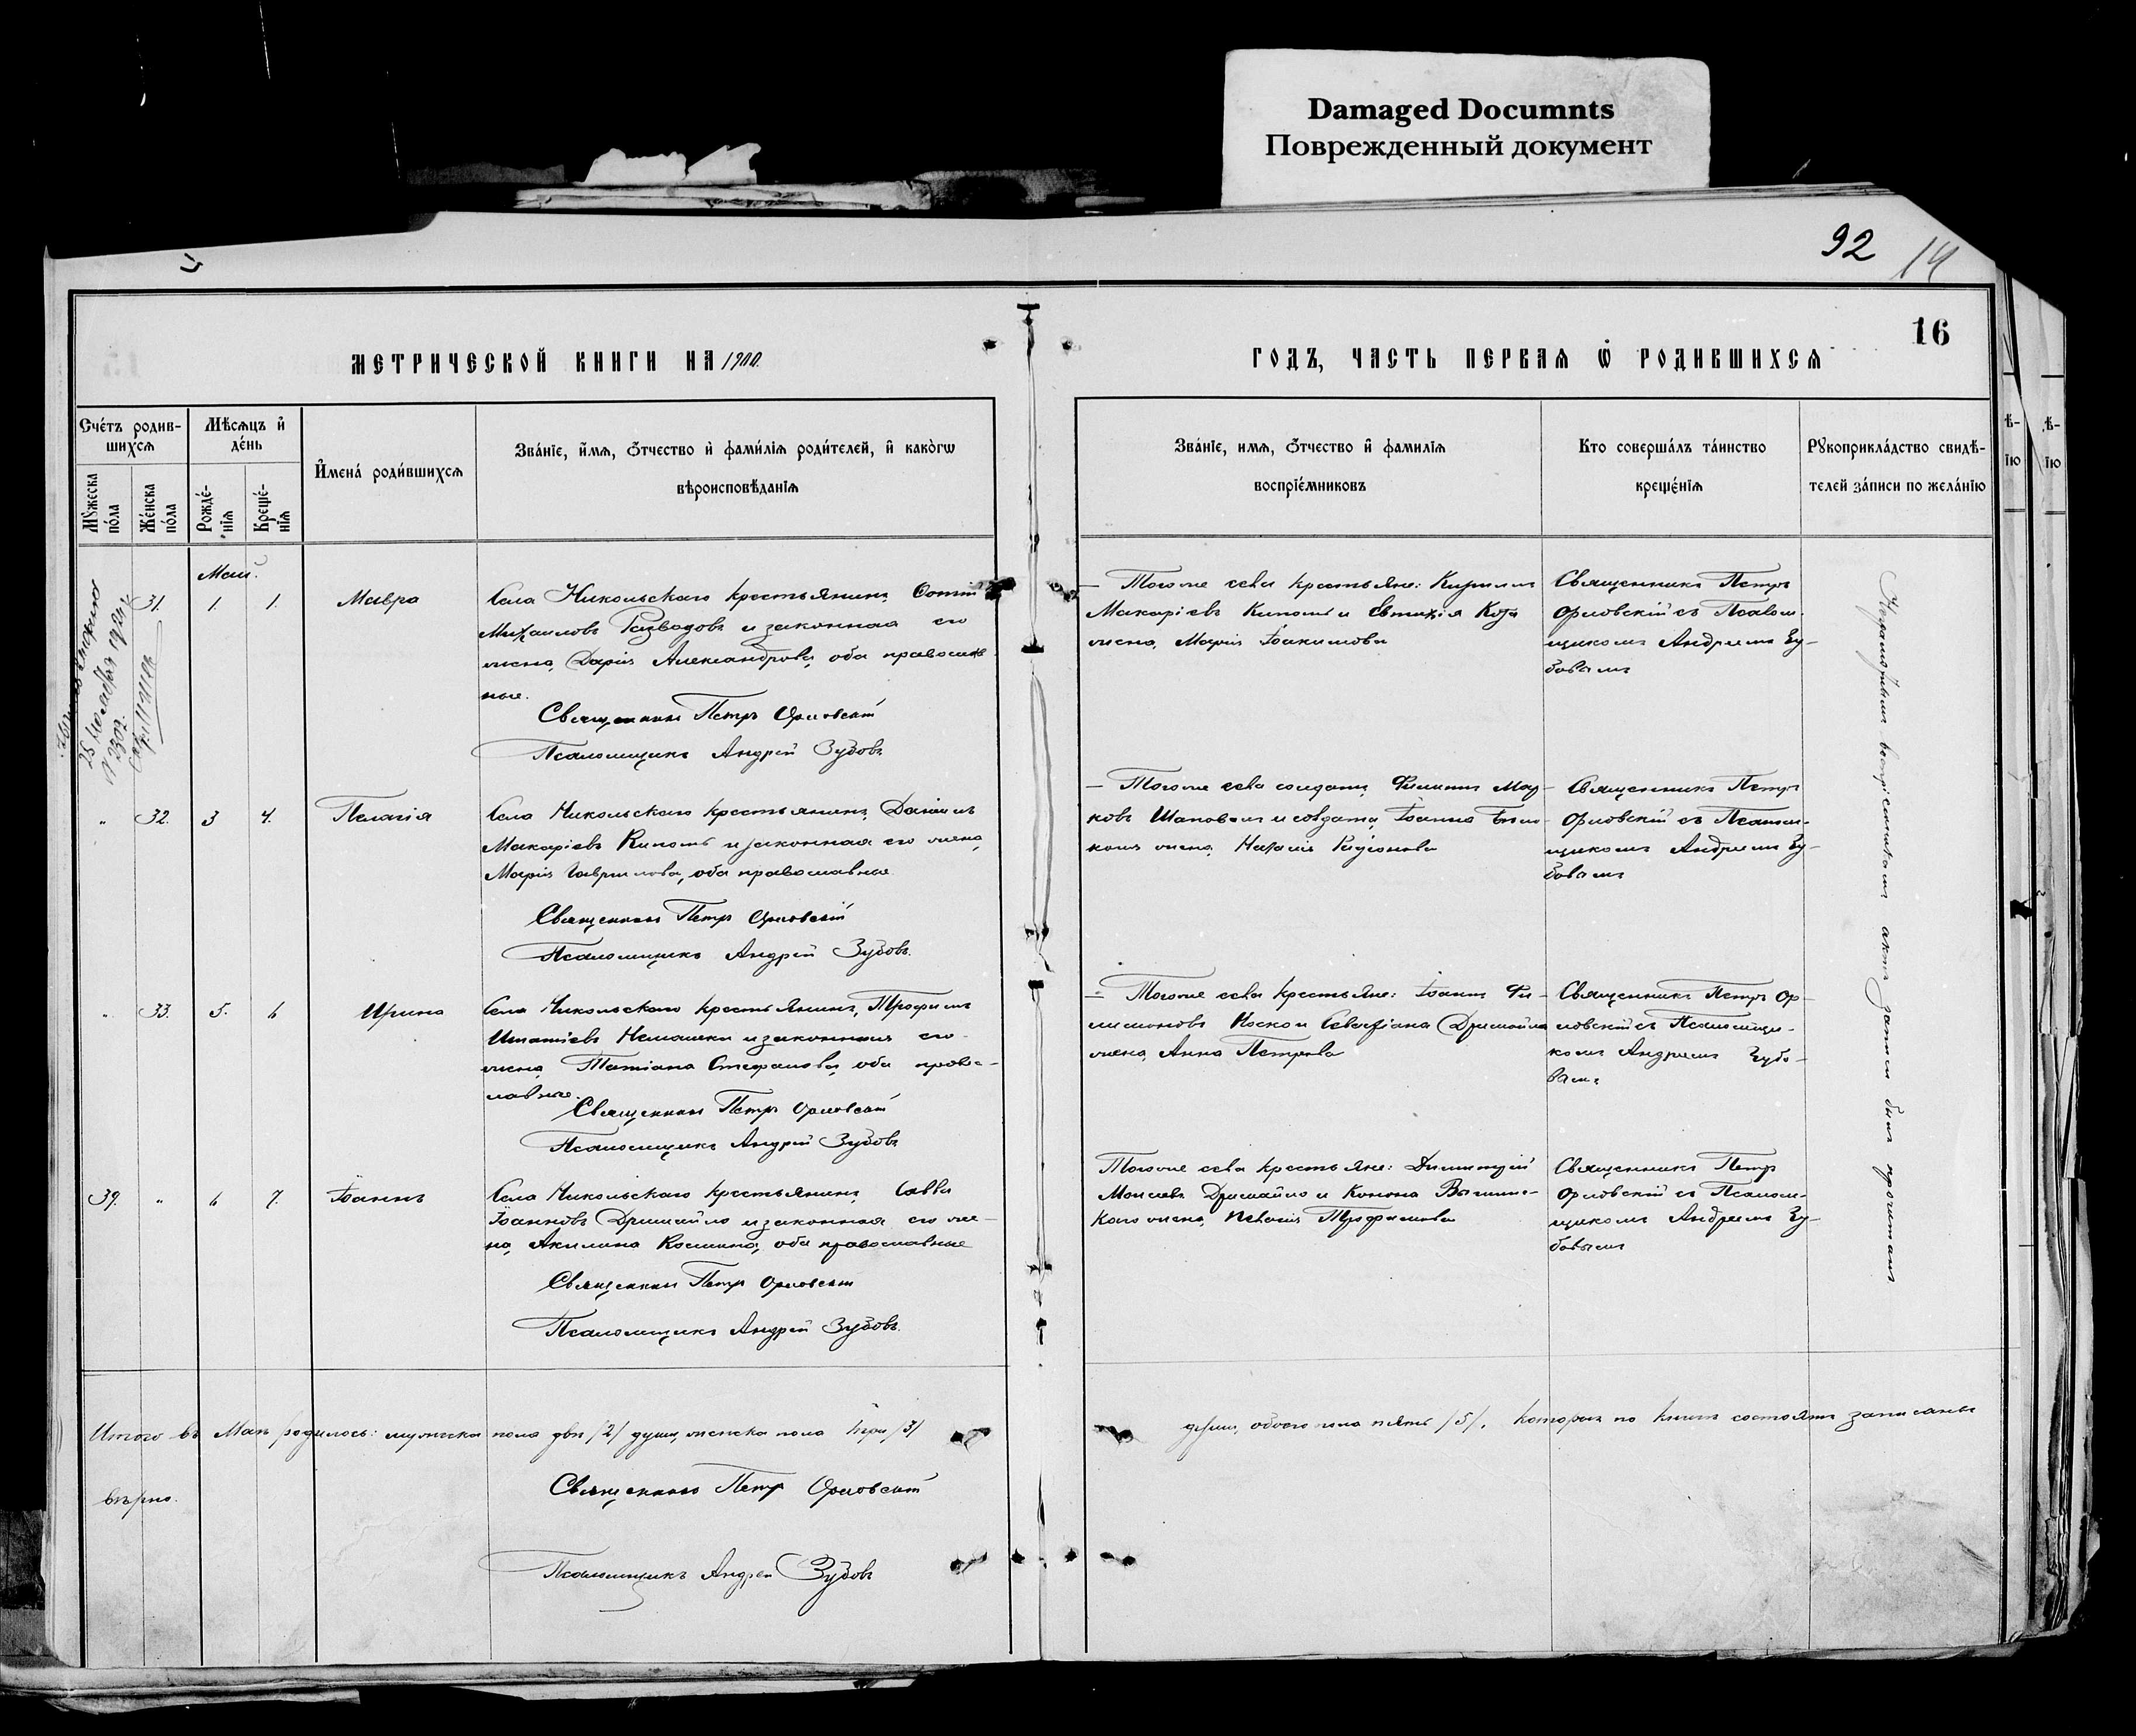 Damaged Documnts
Поврежденный документ
92
14
16
МЕТРИЧЕСКОЙ КНИГИ НА 1900.
ГОДЪ, ЧАСТЬ ПЕРВАѦ Ѡ РОДИВШИХСѦ
Счетъ родив-
шихсѧ
Мꙋжеска
пола
Женска
пола
Мѣсѧцъ и
день
Рожде-
нїѧ
Креще-
нїѧ
Имена родившихсѧ
Званїе, имѧ, ѻтчество и фамилїѧ родителей, и какогѡ
вѣроисповѣданїѧ
Званїе, имѧ, ѻтчество и фамилїѧ
воспрїемниковъ
Кто совершалъ таинство
крещенїѧ
Рꙋкоприкладство свидѣ-
телей записи по желанїю
Май.
31. 1. 1. Мавра
Села Никольскаго крестьянинъ
Михаиловъ Разводовъ и законная его
жена, Дарія Александрова, оба православ-
ные.
Священникъ Петръ Орловскій
Псаломщикъ Андрей Зубовъ
— Того же села крестьяне: Кириллъ
Макаріевъ Кипоть и Евтихія Коза
жена, Марія Іоакимова
Священникъ Петръ
Орловскій съ Псалом-
щикомъ Андреемъ Зу-
бовымъ
" 32. 3 4. Пелагія
Села Никольскаго крестьянинъ, Даніилъ
Макаріевъ Кипоть и законная его жена,
Марія Гаврилова, оба православные.
Священникъ Петръ Орловскій
Псаломщикъ Андрей Зубовъ.
— Того же села солдатъ, Филиппъ Мар-
ковъ Шаповалъ и солдата, Іоанна
жена, Наталія Родіонова
Священникъ Петръ
Орловскій съ Псалом-
щикомъ Андреемъ Зу-
бовымъ
" 33. 5. 6 Ирина
Села Никольскаго крестьянинъ, Трофимъ
Игнатіевъ и законная его
жена, Татіана Стефанова, оба право-
славные.
Священникъ Петръ Орловскій
Псаломщикъ Андрей Зубовъ
— Того же села крестьяне: Іоаннъ Фи-
лимоновъ Носко и Севастіана Дримайло
жена, Анна Петрова
Священникъ Петръ Ор-
ловскій съ Псаломщи-
комъ Андреемъ Зубо-
вымъ
39. " 6 7. Іоаннъ
Села Никольскаго крестьянинъ, Савва
Іоанновъ Дримайло и законная его же-
на, Акилина Косьмина, оба православные
Священникъ Петръ Орловскій
Псаломщикъ Андрей Зубовъ.
Того же села крестьяне: Димитрій
Моисеевъ Дримайло и Конона
жена, Пелагія Трофимова
Священникъ Петръ
Орловскій съ Псалом-
щикомъ Андреемъ Зу-
бовымъ
Неграмотнымъ воспріемникамъ актъ записи былъ прочитанъ
Итого въ Маѣ родилось: мужеска пола двѣ /2/ души, женска пола три /3/
души, обоего пола пять /5/, которыя по книгѣ состоятъ записаны
вѣрно.
Священникъ Петръ Орловскій
Псаломщикъ Андрей Зубовъ